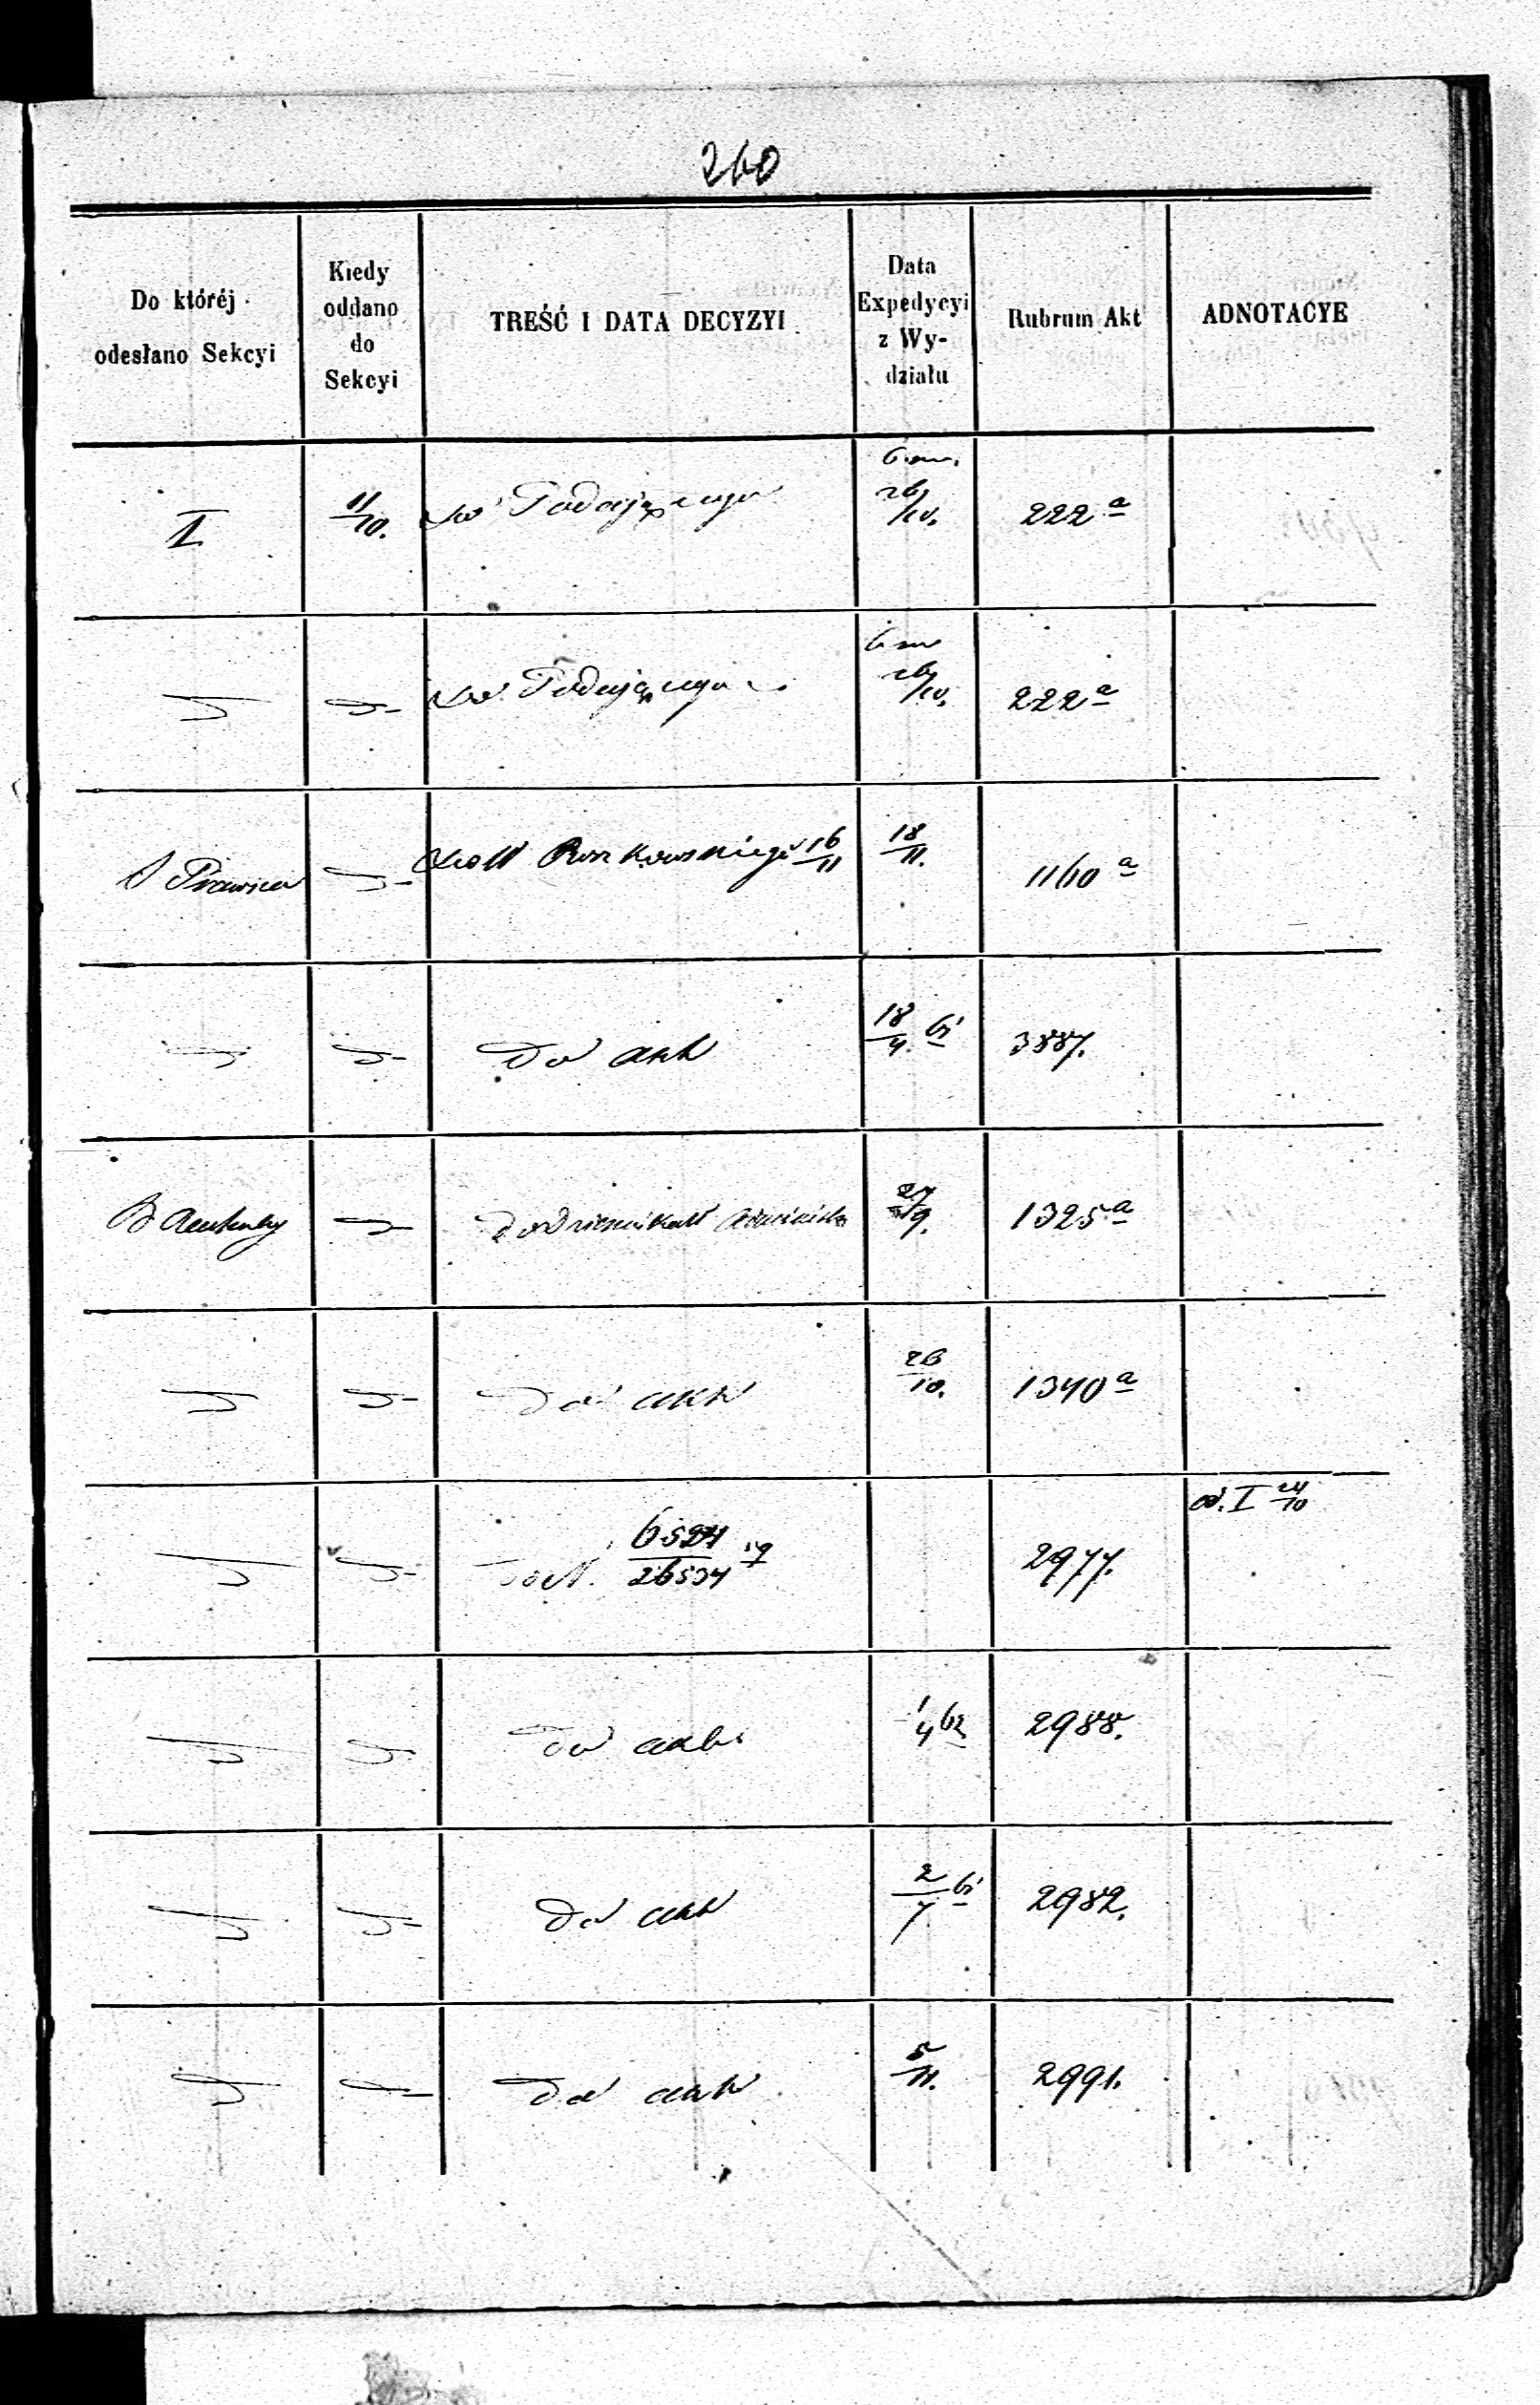 260
Do któréj odesłano Sekcyi | Kiedy oddano do Sekcyi | TREŚĆ I DATA DECYZYI | Data Expedycyi z Wydziału | Rubrum Akt | ADNOTACYE
II | 11/10. | do Podającego | 26/10. | 222 a
do Podającego | 26/10. | 222 a
Prawna | 16/11 | 18/11. | 1160 a
Do akt | 18/4. | 3887.
27/9. | 1325 a
Do akt | 26/10. | 1340 a
do N. 6524/26534 | 2977. | od. I 24/10
Do akt | 1/4 62 | 2988.
Do akt | 2/7 | 2982.
Do akt | 5/11. | 2991.